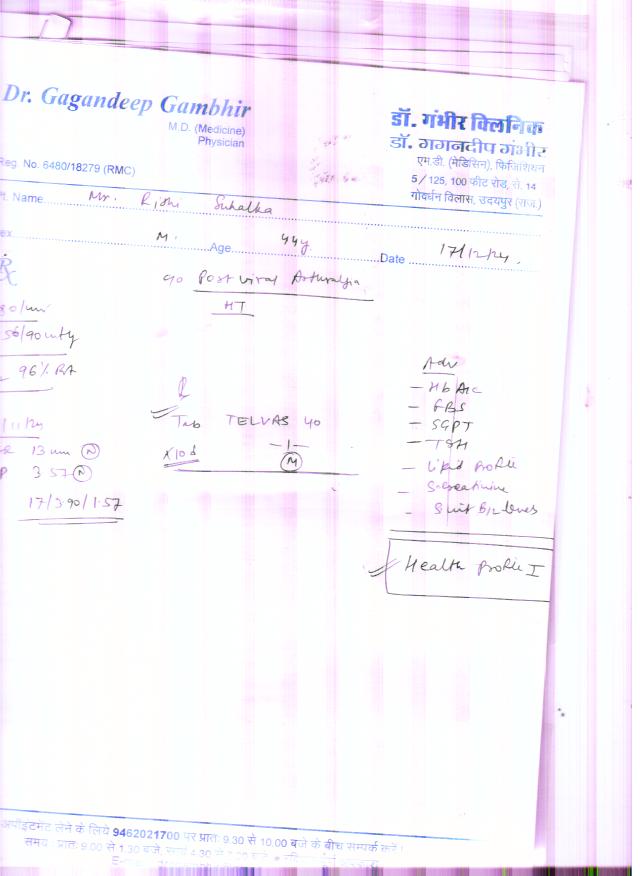 Dr. Gagandeep Gambhir
M.D. (Medicine)
Physician
Reg. No. 6480/18279 (RMC)
डॉ. गंभीर क्लिनिक
डॉ. गगनदीप गंभीर
एम.डी. (मेडिसिन), फिजिशियन
5/125, 100 फीट रोड, से. 14
गोवर्धन विलास, उदयपुर (राज.)
t. Name Mr. Rishi Suhalka
ex M. Age 44y Date 17/12/24.
Rx
Post viral Arthralgia
HT
96% RA
13 mm N
3.57 N
17/3.90/1.57
Tab TELVAS 40
-1-
M
x 10 d
Adv
- HbA1c
- FBS
- SGPT
- TSH
- Lipid Profile
- S. creatinine
- B12 levels
Health Profile I
अपॉइंटमेंट लेने के लिये 9462021700 पर प्रातः 9.30 से 10.00 बजे के बीच सम्पर्क करें।
समय : प्रातः 9.00 से 1.30 बजे,